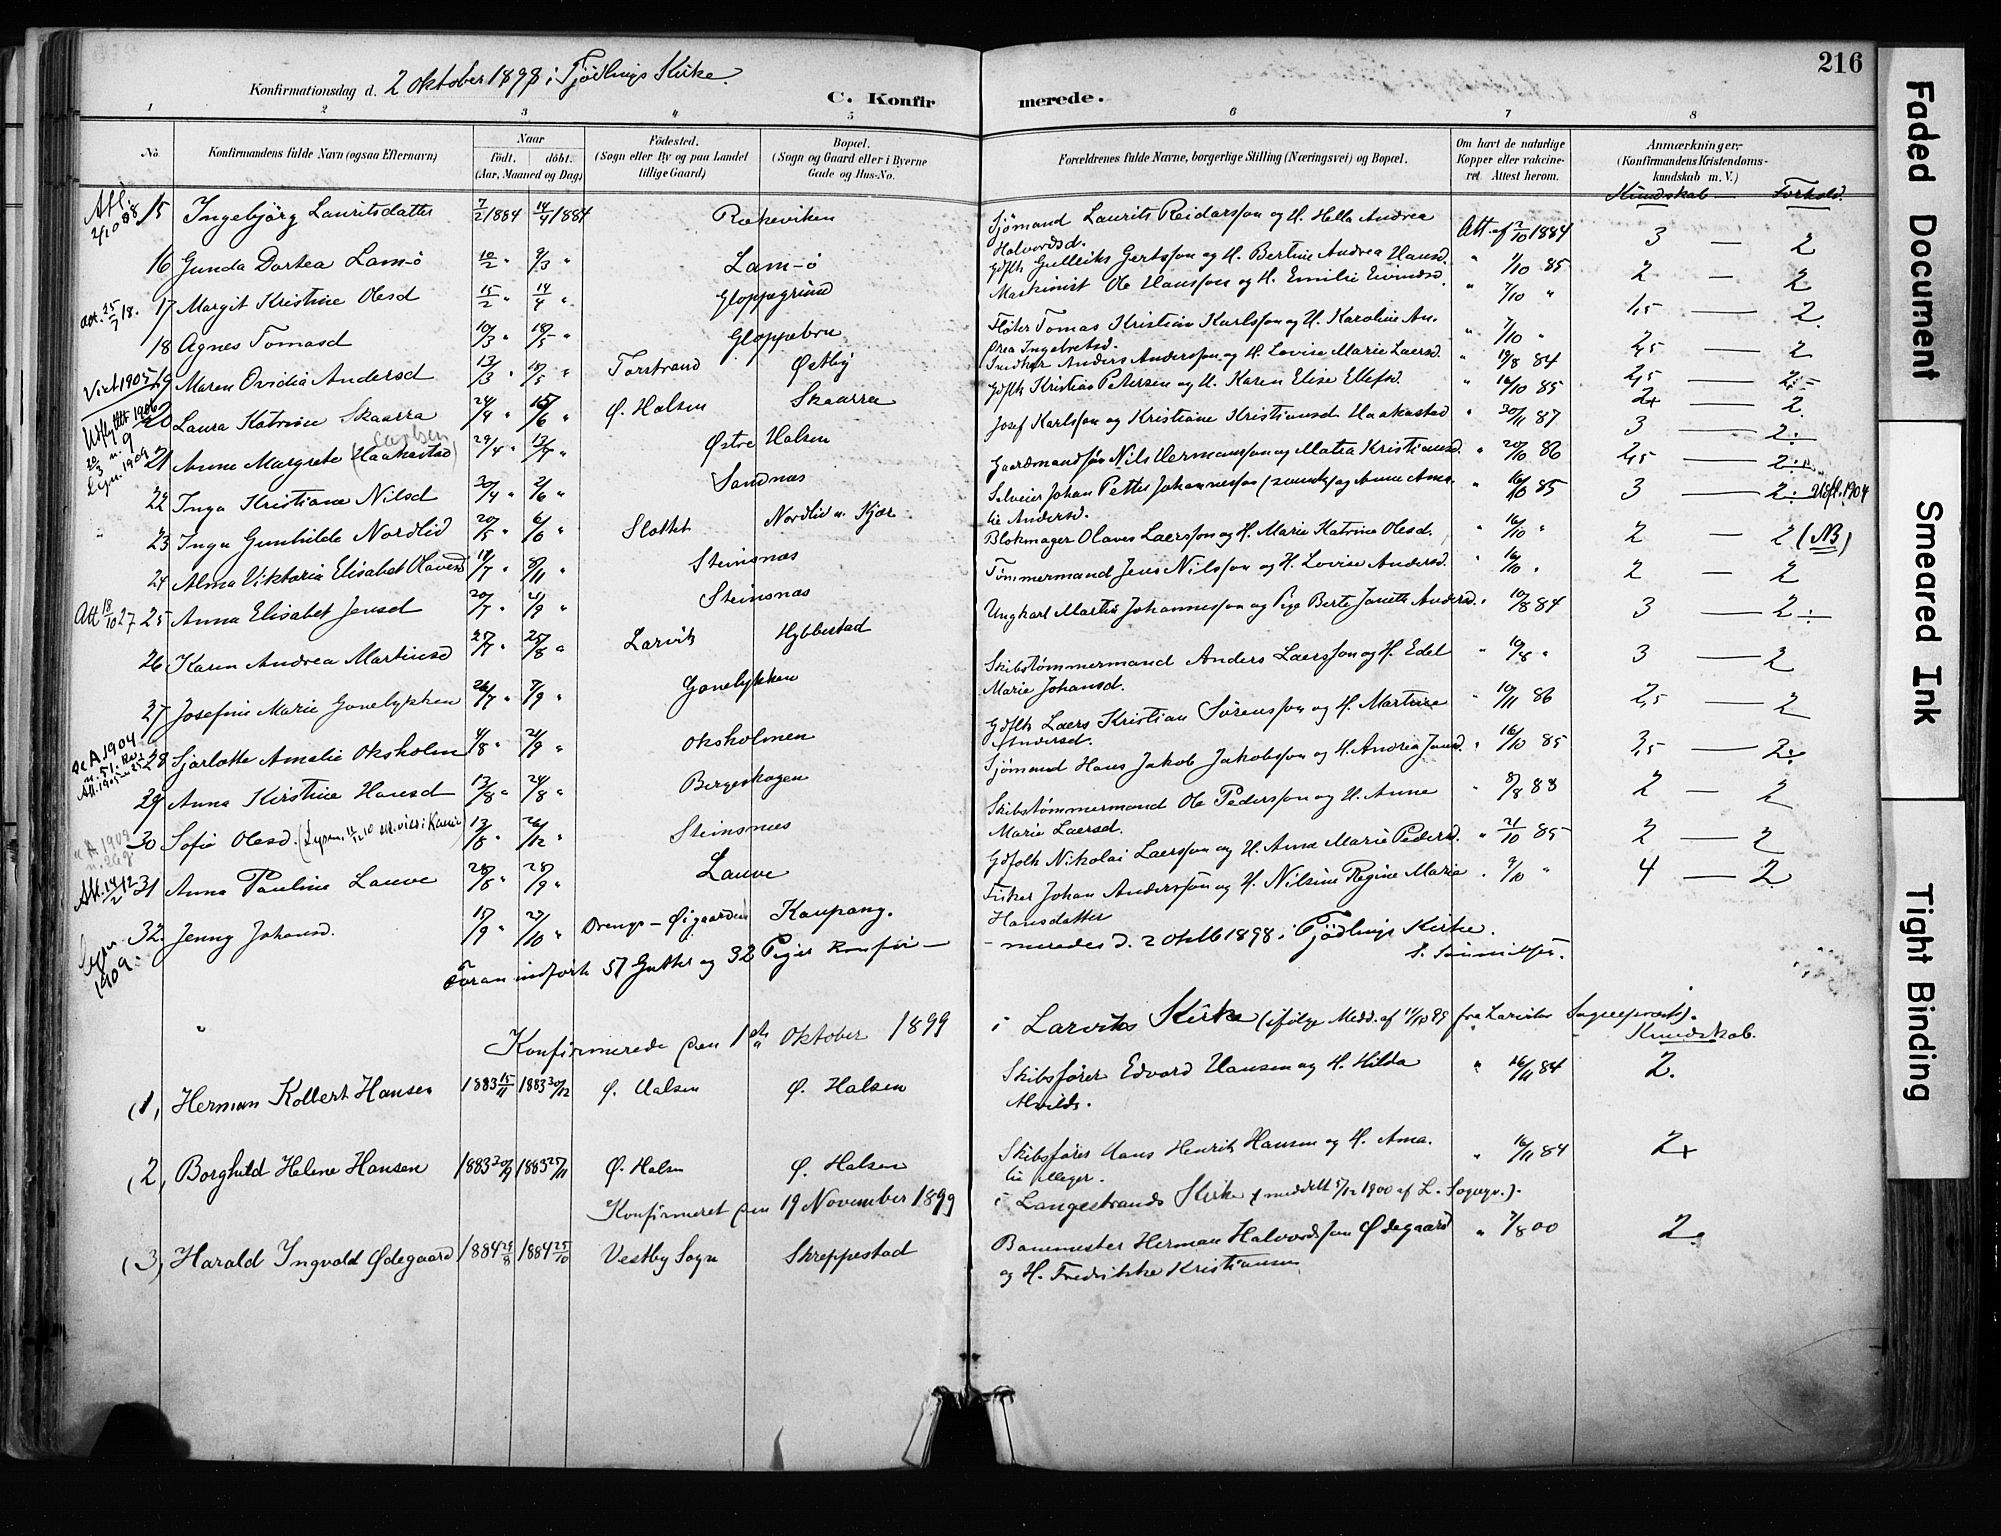 216
Konfirmationsdag d. 2 Oktober 1898 i Tjødlings Kirke
C. Konfirmerede.
1 2 3 4 5 6 7 8
No. Konfirmandens fulde Navn (ogsaa Efternavn) Naar født. døbt. (Aar, Maaned og Dag) Fødested. (Sogn eller By og paa Landet tillige Gaard) Bopæl. (Sogn og Gaard eller i Byerne Gade og Hus-No. Forældrenes fulde Navne, borgerlige Stilling (Næringsvei) og Bopæl. Om havt de naturlige Kopper eller vakcineret. Attest herom. Anmærkninger. (Konfirmandens Kristendomskundskab m. V.)
Kundskab — Forhold.
15 Ingebjørg Lauritsdatter 7/2 1884 14/4 1884 Rækeviken Sjømand Laurits Reidarsson og H. Helle Andrea Halvordsd. Att. af 2/10 1884 3 — 2
16 Gunda Dortea Lam-ö 10/2 " 9/3 " Lam-ö Gdflk Gulleik Gertsson og H. Bertine Andrea Hansd. " 7/10 85 2 — 2
Att. 25/7 18. 17 Margit Kristine Olesd 15/2 " 14/4 " Gloppegrund Maskinist Ole Hansson og H. Emilie Eivindsd. " 7/10 " 1,5 — 2
18 Agnes Tomasd 10/3 " 18/5 " Gloppebru Fløter Tomas Kristian Karlsson og H. Karoline Andrea Ingebretsd. " 7/10 " 2,5 — 2
Viet 1905 19 Maren Ovidia Andersd 13/3 " 18/5 " Torstrand Østby Indher Anders Andersson og H. Lovise Marie Laersd. " 19/8 84 2,5 — 2,5
Udflyttet 1906 20 Laura Katrine Skaarra 24/4 " 15/6 " Ø. Halsen Skaarra Gdflk Kristian Petersen og H. Karen Elise Ellefsd. " 16/10 85 2+ — 2.
Lysn. 1909 21 Anna Margrete (Haakastad) 29/4 " 13/7 " Østre Halsen Josef Karlsson og Kristiane Kristiansd Haakastad " 30/11 87 3 — 2:
22 Inga Kristiane Nilsd 30/4 " 2/6 " Sandnæs Gaardmandssøn Nils Hermansson og Matea Kristiansd. " 20/10 86 2,5 — 2:
23 Inga Gunhilde Nordlid 20/5 " 6/6 " Slottet Nordlid u. Kjær Selveier Johan Petter Johannesson og Anne Amalie Andersd. " 16/10 85 3 — 2: Udfl. 1904
24 Alma Viktoria Elisabet Olavesd 18/7 " 8/11 " Steinsnæs Blokmager Olaves Laersson og H. Marie Katrine Olesd. " 16/10 " 2 — 2 (NB)
Att 18/10 27 25 Anna Elisabet Jensd 20/7 " 21/9 " Steinsnæs Tømmermand Jens Nilsson og H. Lovise Andersd. " 16/10 " 2 — 2
26 Karen Andrea Martinsd 25/7 " 25/8 " Larvik Hybbestad Ungkarl Martin Johannesson og Pige Berte Janette Andersd. " 19/8 84 3 — 2:
27 Josefine Marie Gonelykken 26/7 " 7/9 " Gonelykken Skibstømmermand Anders Laersson og H. Edel Marie Johansd. " 19/8 " 3 — 2
28 Sjarlotte Amalie Oksholm 4/8 " 21/9 " Oksholmen Gdflk Laers Kristian Sørensson og H. Martine Andersd. " 10/11 86 2,5 — 2
29 Anna Kirstine Hansd 13/8 " 24/8 " Bergeskogen Sjømand Hans Jakob Jakobsson og H. Andrea Jensd. " 16/10 85 3,5 — 2:
30 Sofie Olesd. 13/8 " 26/12 " Steinsnæs Skibstømmermand Ole Pedersson og H. Anne Marie Laersd. " 8/8 88 2 — 2
Att. 14/2 12 31 Anna Pauline Lauve 28/8 " 28/9 " Lauve Gdfolk Nikolai Laersson og H. Anne Marie Pedersd. " 21/10 85 2 — 2
Lysn. 1909. 32. Jenny Johansd. 15/9 " 27/10 " Drengs-Øigaarden Kaupang. Fisker Johan Andersson og H. Nilsine Regine Marie Hansdatter " 9/10 " 4 — 2
Foran indførte 57 Gutter og 32 Piger konfirmeredes d. 2 Oktb 1898 i Tjødlings Kirke.
Konfirmerede den 1ste Oktober 1899 i Larviks Kirke (ifølge Medd. af 11/10 99 fra Larviks Sogneprest).
Kundskab.
(1, Herman Kollert Hansen 1883 15/11 1883 30/12 Ø. Halsen Ø. Halsen Skibsfører Edvard Hansen og H. Hilda Alvilde. " 26/11 84 2.
(2, Borghild Helene Hansen 1883 20/9 1883 25/11 Ø. Halsen Ø. Halsen Skibsfører Hans Henrik Hansen og H. Amalie Meyer. " 16/11 84 2+
Konfirmeret den 19 November 1899 i Langestrands Kirke (meddelt 5/12 1900 af L. Sogepr.).
(3, Harald Ingvald Ødegaard 1884 29/8 1884 25/10 Vestby Sogn Skreppestad Banemester Herman Halvordsson Ødegaard og H. Fredrikke Kristiansen " 7/8 00 2.
Faded Document
Smeared Ink
Tight Binding